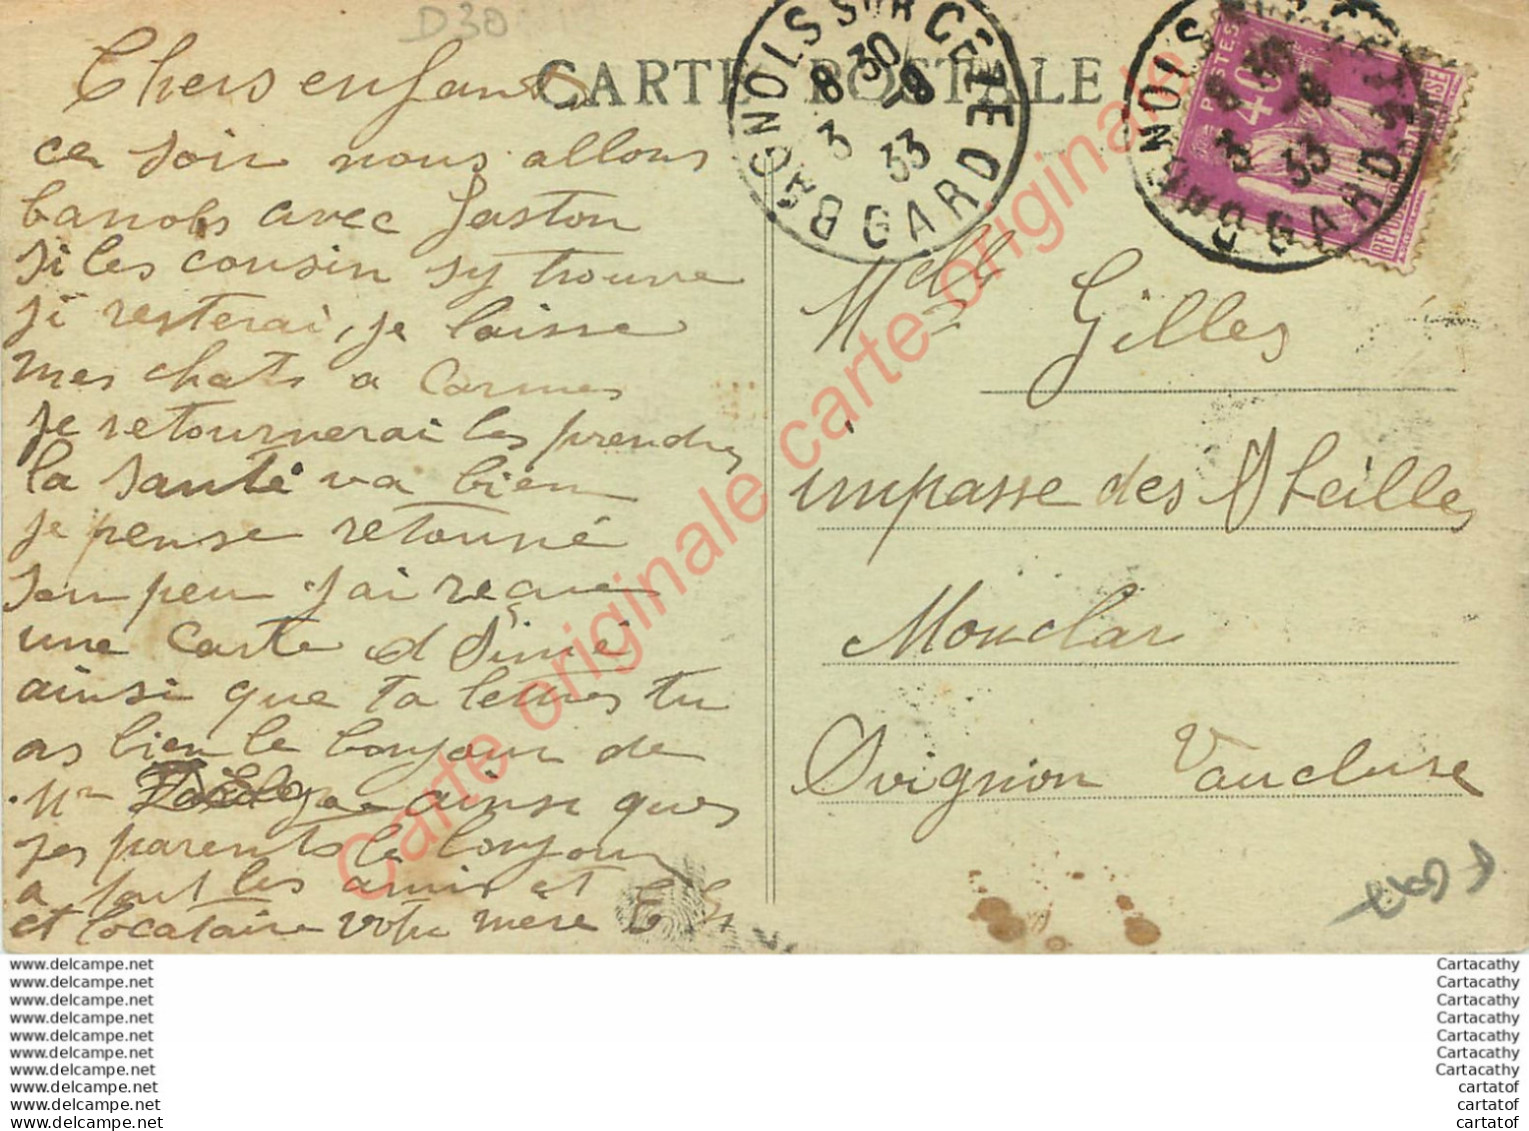 D30
CARTE POSTALE
BAGNOLS SUR CÈZE
8 30
3 -8
33
GARD
POSTES
40c
REPUBLIQUE FRANÇAISE
Chers enfants
ce soir nous allons
banols avec Gaston
si les cousin sy trouve
ji resterai, je laisse
mes chats a Carmes
je retournerai les prendre
la santé va bien
je pense retourné
sou peu j'ai reçue
une carte d
ainsi que ta lettres tu
as bien le bonjour de
Mr ainsi que
ses parents le bonjour
a tout les amis et
et locataire votre mère
Melle Gilles
impasse des Abeilles
Monclar
Avignon Vaucluse
Carte originale carte originale carte originale
www.delcampe.net
www.delcampe.net
www.delcampe.net
www.delcampe.net
www.delcampe.net
www.delcampe.net
www.delcampe.net
www.delcampe.net
www.delcampe.net
www.delcampe.net
Cartacathy
Cartacathy
Cartacathy
Cartacathy
Cartacathy
Cartacathy
Cartacathy
cartatof
cartatof
cartatof